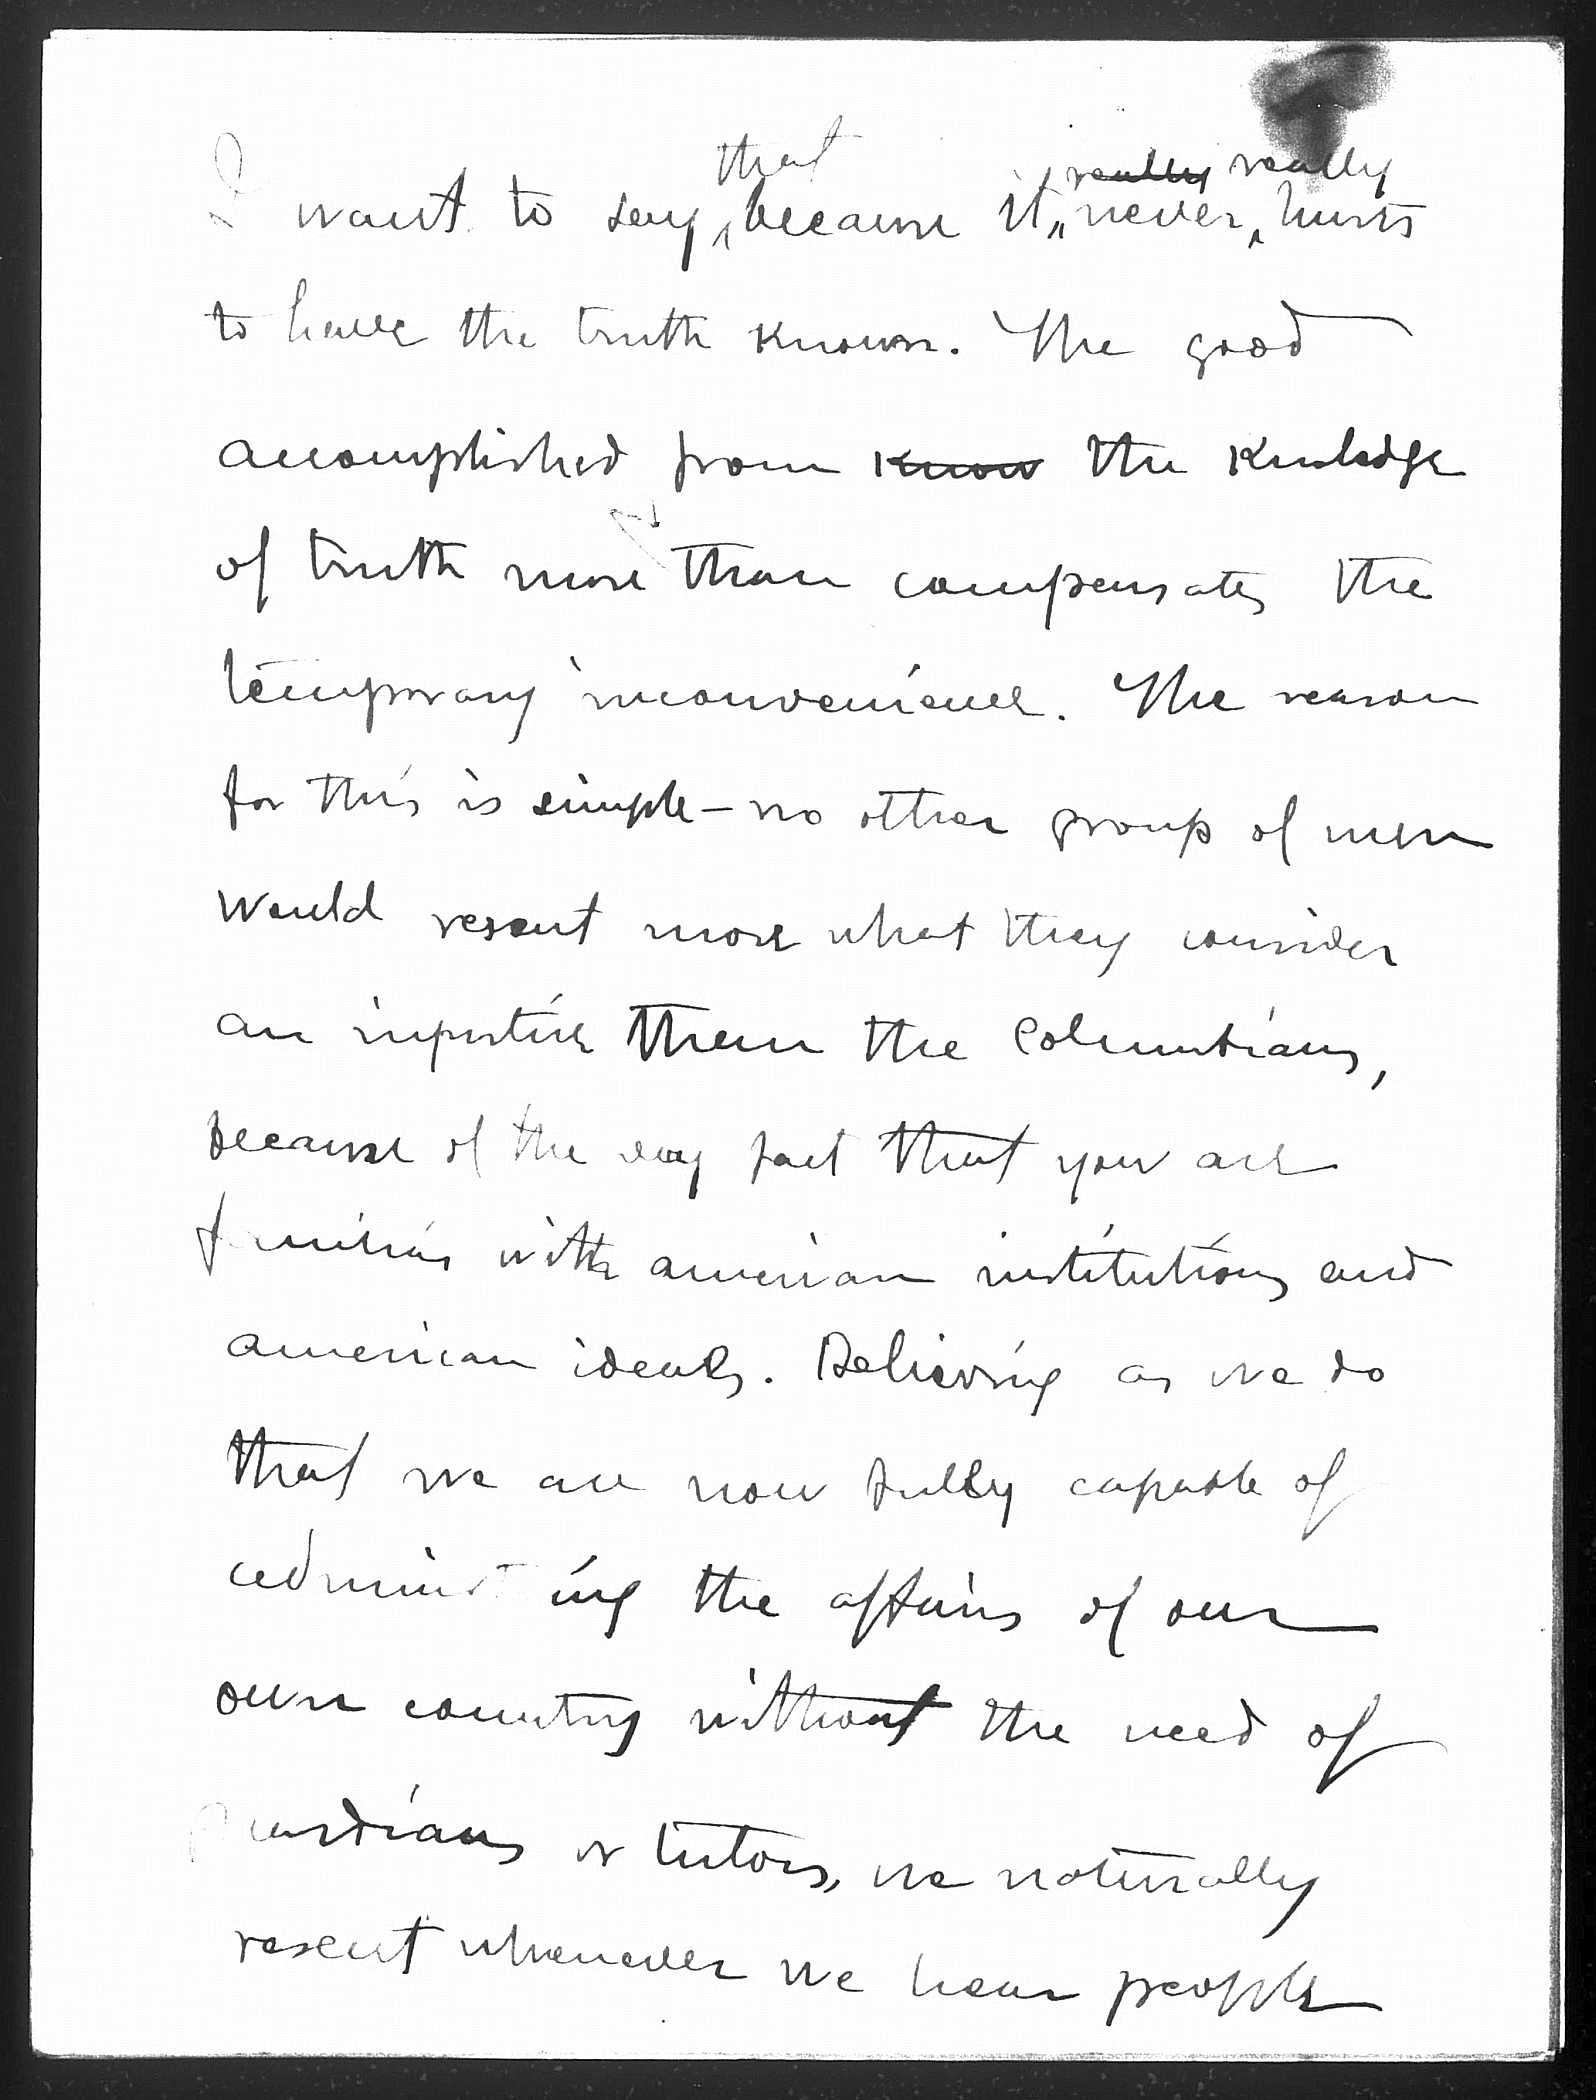 I want to say, that because it really really never hurts
to have the truth known. The good
accomplished from know the knowledge
of truth more than compensates the
temporary inconvenience. The reason
for this is simple – no other group of men
would resent more what they consider
an injustice than the Columbians,
because of the very fact that you are
familiar with american institutions and
american ideals. Believing as we do
that we are now fully capable of
administ ing the affairs of our
own country without the need of
guardians or tutors, we naturally
resent whenever we hear people